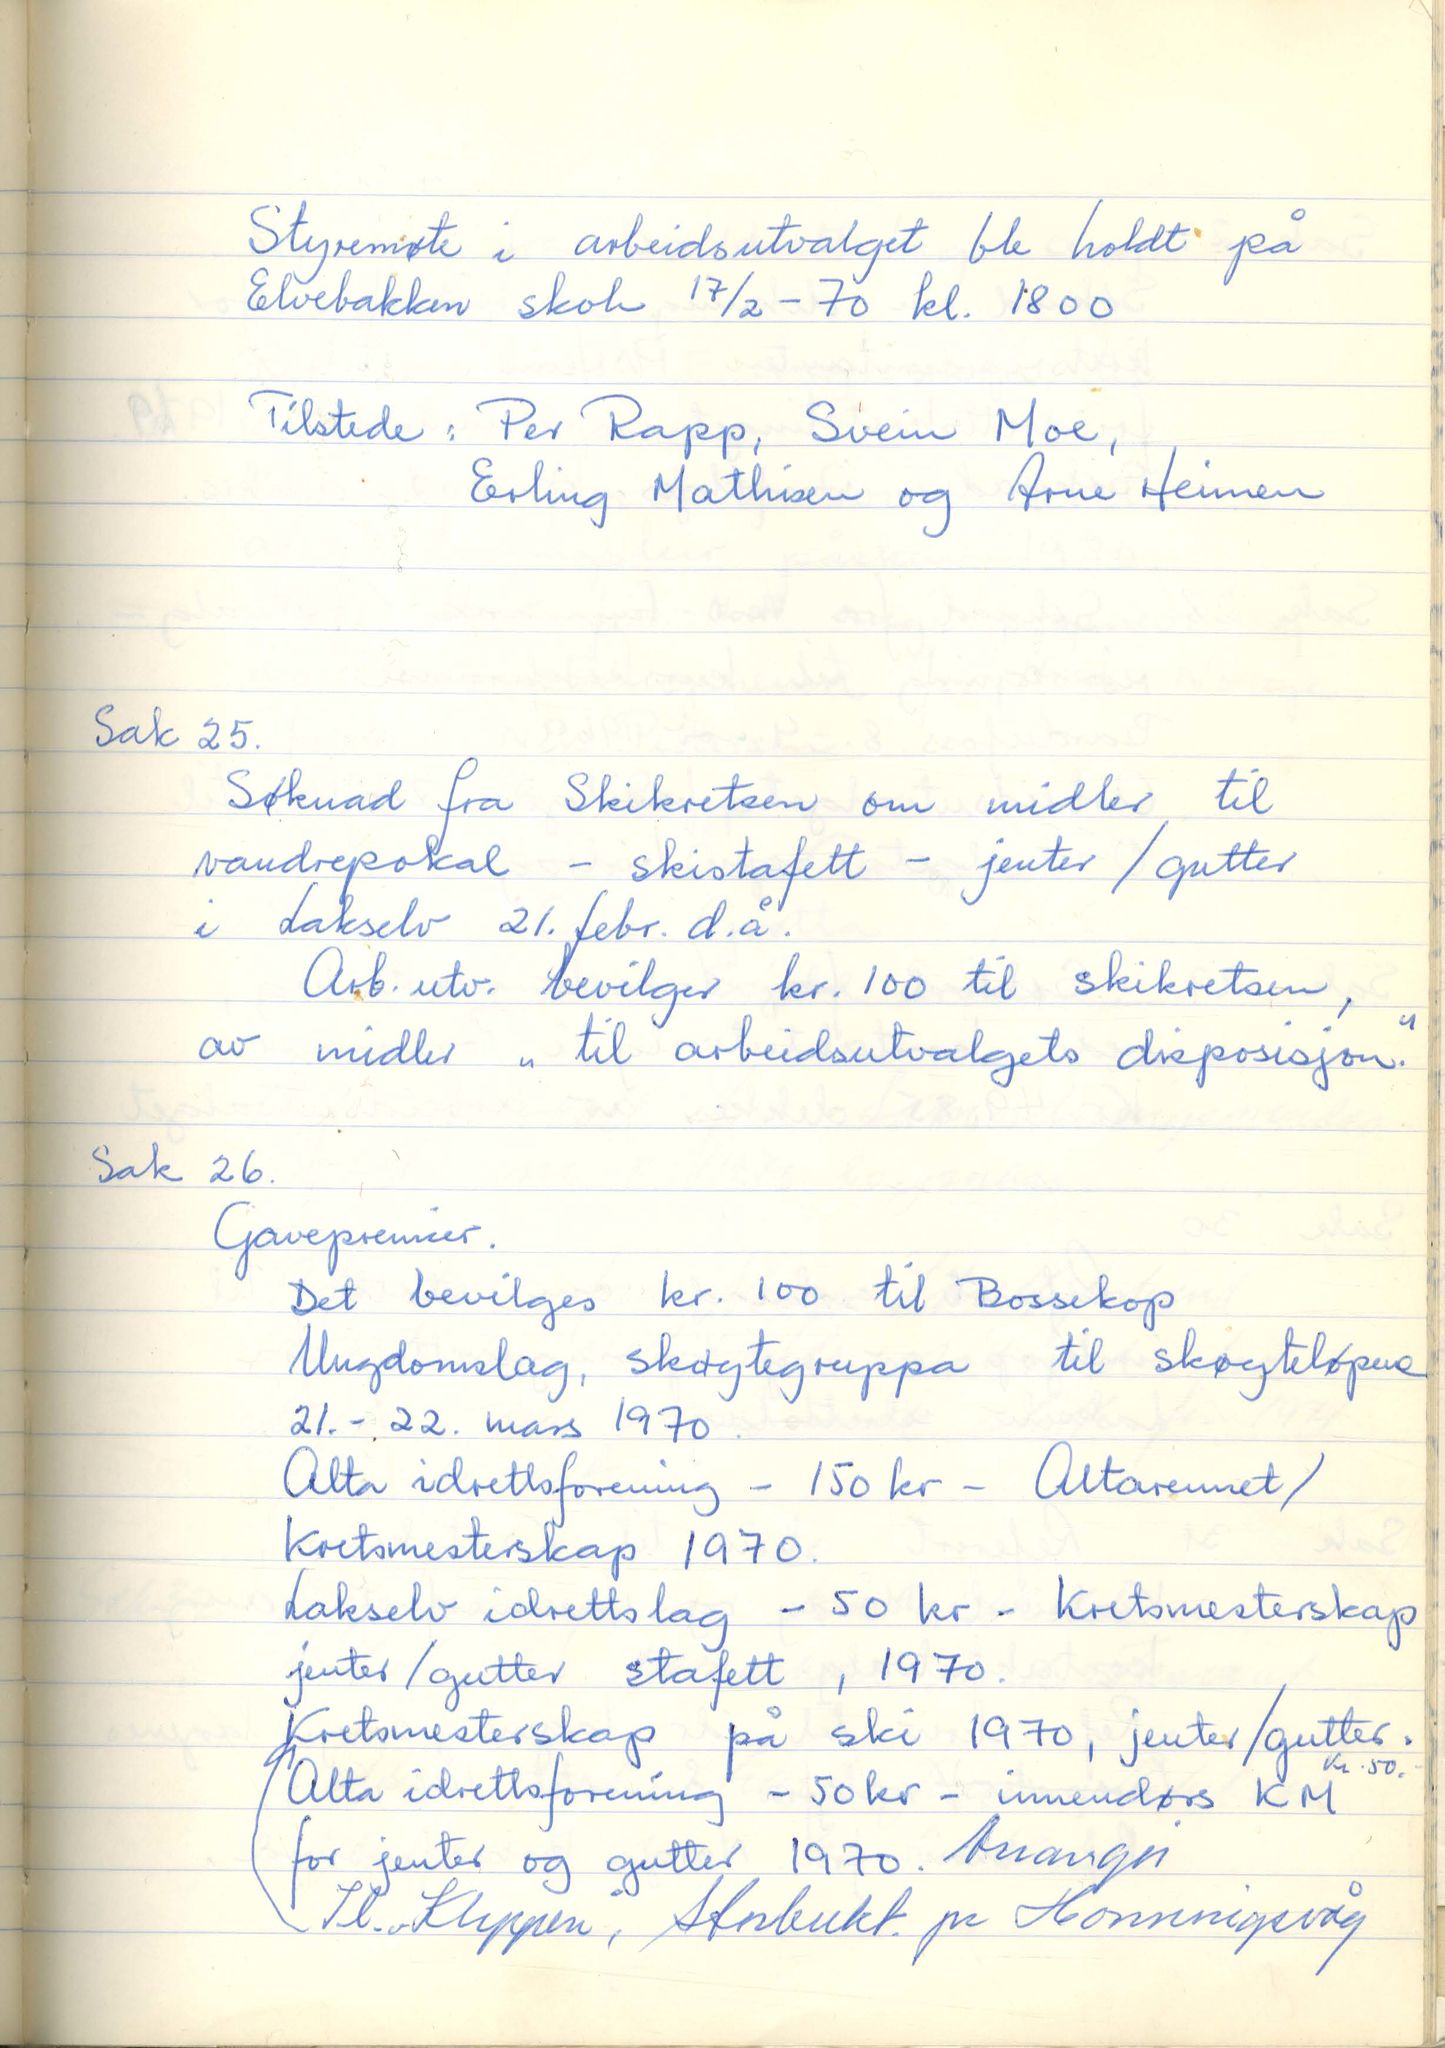 Styremøte i arbeidsutvalget ble holdt på
Elvebakken skole 17/2 - 70 kl. 1800
Tilstede: Per Rapp, Svein Moe,
Erling Mathisen og Arne Heimen
Sak 25.
Søknad fra Skikretsen om midler til
vandrepokal - skistafett - jenter/gutter
i Lakselv 21. febr. d.å.
Arb. utv. bevilger kr. 100 til skikretsen,
av midler „til arbeidsutvalgets disposisjon."
Sak 26.
Gavepremier.
Det bevilges kr. 100 til Bossekop
Ungdomslag, skøytegruppa til skøyteløpene
21. - 22. mars 1970.
Alta idrettsforening - 150 kr - Altarennet/
Kretsmesterskap 1970.
Lakselv idrettslag - 50 kr - Kretsmesterskap
jenter/gutter stafett, 1970.
Kretsmesterskap på ski 1970, jenter/gutter.
kr. 50.-
Alta idrettsforening - 50 kr - innendørs KM
for jenter og gutter 1970.
I.l. Klippen, Storbukt. pr Honningsvåg